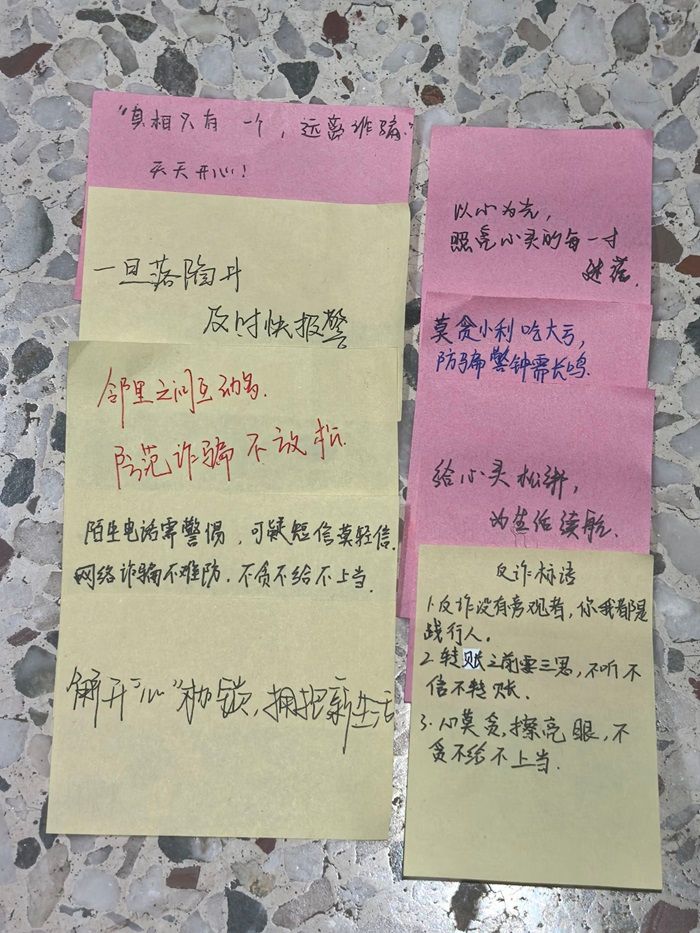 "真相只有一个，远离诈骗."
天天开心！
一旦落陷井
及时快报警
邻里之间互动多.
防范诈骗不放松.
陌生电话需警惕，可疑短信莫轻信.
网络诈骗不难防.不贪不给不上当.
解开"心"枷锁，拥抱新生活
以心为光，
照亮心灵的每一寸
莫贪小利吃大亏，
防骗警钟需长鸣.
给心灵松绑，
为生活续航.
反诈标语
1.反诈没有旁观者，你我都是
践行人.
2.转账之前要三思，不听不
信不转账.
3.心莫贪，擦亮眼，不
贪不给不上当.